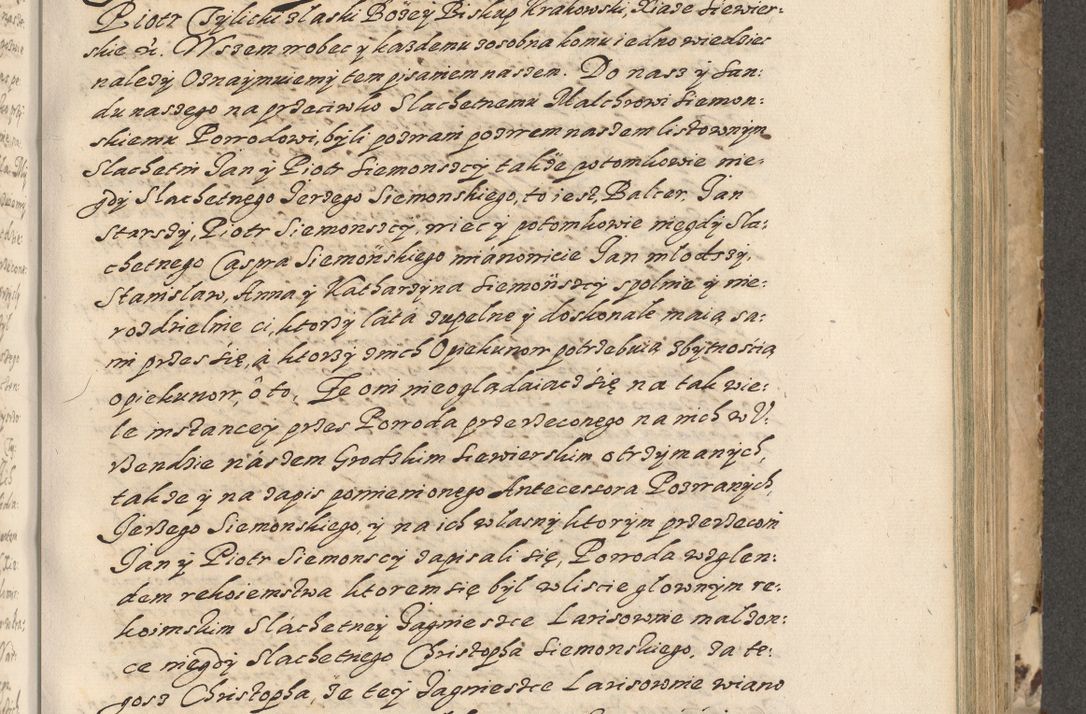 Piotr Tylicki z laski Bożey Biskup Krakowski, Xiąże Siewier:
skie &c. Wszem wobec y każdemu zosobna komu iedno wiedziec
należy Oznaymuiemy tem pisaniem naszem. Do nasz y Sun:
du naszego na przeciwko Slachetnemu Malchrowi Siemon:
skiemu Powodowi, byli pozwani pozwem naszem listownym
Slachetni Jan y Piotr Siemonszcy także potomkowie nie:
gdy Slachetnego Jerzego Siemonskiego, to iest, Balcer, Jan
Starszy, Piotr Siemonszcy, wiec y potomkowie niegdy Sla:
chetnego Caspra Siemońskiego mianowicie Jan mlodszy,
Stanislaw, Anna y Katharzyna Siemonszcy spolnie y nie:
rozdzielnie ci, ktorzy lata zupelne y doskonale maią sa:
mi przes się, a ktorzy znich Opiekunow potrzebuią zbytnoscią
opiekunow, o to, Ze oni nieoglądaiącz się na tak wie:
le instancey przes Powoda przerzeconego na nich w U:
rzendzie nászem Grodzkim Siewierskim otrzymanych,
także y na zapis pomienionego Antecessora Pozwanych,
Jerzego Siemonskiego, y na ich wlasny ktorym przerzeconi
Jan y Piotr Siemonscy zapisali się, Powoda wzglen:
dem rekoiemstwa ktorem się był w liscie glownym re:
koimskim Slachetney Jagnieszce Larisownie malzon:
ce niegdy Slachetnego Christopha Siemonskiego, za te:
gosz Christopha, że tey Jagnieszce Larisownie wiano